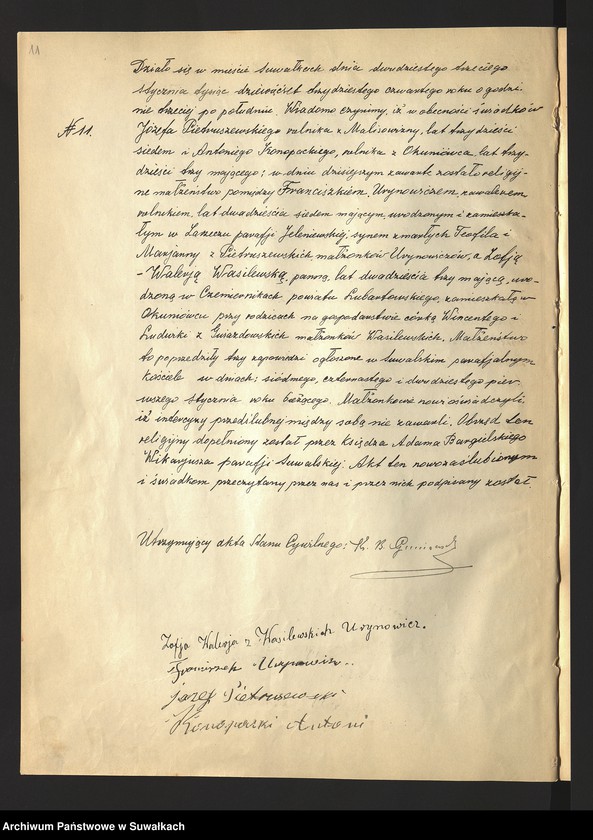 11
Działo się w mieście Suwałkach dnia dwudziestego trzeciego
stycznia tysiąc dziewięćset trzydziestego czwartego roku o godzi-
nie trzeciej po południu. Wiadomo czynimy, iż w obecności świadków
№ 11. Józefa Pietruszewskiego rolnika z Malisowizny, lat trzydzieści
siedem i Antoniego Konopackiego, rolnika z Okuniówca, lat trzy-
dzieści trzy mającego; w dniu dzisiejszym zawarte zostało religij-
ne małżeństwo pomiędzy Franciszkiem Urynowiczem, kawalerem
rolnikiem, lat dwadzieścia siedem mającym, urodzonym i zamieszka-
łym w Łanieczu parafji Jeleniewskiej, synem zmarłych Teofila i
Marjanny z Pietruszewskich, małżonków Urynowiczów, a Zofją
-Walerją Wasilewską, panną, lat dwadzieścia trzy mającą, uro-
dzoną w Czemiernikach powiatu Lubartowskiego, zamieszkałą w
Okuniówcu przy rodzicach na gospodarstwie córką Wincentego i
Ludwiki z Gwiazdowskich małżonków Wasilewskich. Małżeństwo
to poprzedziły trzy zapowiedzi ogłoszone w suwalskim parafjalnym
kościele w dniach: siódmego, czternastego i dwudziestego pier-
wszego stycznia roku bieżącego. Małżonkowie nowi oświadczyli,
iż intercyzy przedślubnej między sobą nie zawarli. Obrzęd ten
religijny dopełniony został przez księdza Adama Bargielskiego
Wikarjusza parafji suwalskiej. Akt ten nowozaślubionym
i świadkom przeczytany przez nas i przez nich podpisany został.
Utrzymujący akta Stanu Cywilnego: Ks. B.
Zofja Walerja z Wasilewskich Urynowicz.
Franciszek Urynowicz.
Józef Pietruszewski
Konopacki Antoni
Archiwum Państwowe w Suwałkach